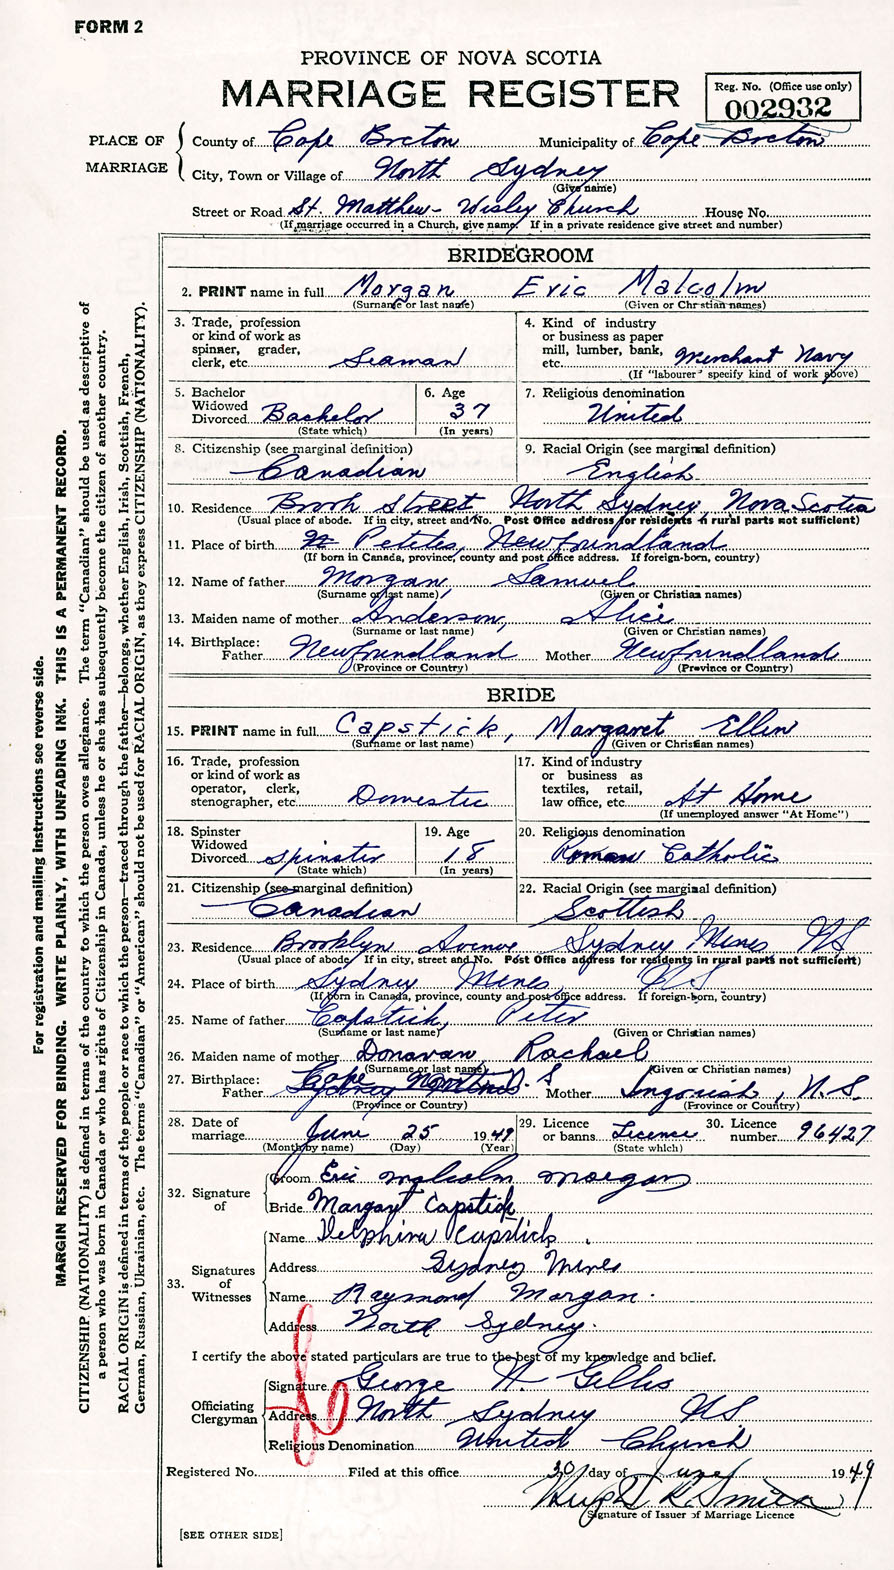 FORM 2
PROVINCE OF NOVA SCOTIA
MARRIAGE REGISTER
Reg. No. (Office use only)
002932
PLACE OF MARRIAGE
County of Cape Breton Municipality of Cape Breton
City, Town or Village of North Sydney
(Give name)
Street or Road St. Matthew - Wesley Church House No.
(If marriage occurred in a Church, give name. If in a private residence give street and number)
BRIDEGROOM
2. PRINT name in full Morgan Eric Malcolm
(Surname or last name) (Given or Christian names)
3. Trade, profession or kind of work as spinner, grader, clerk, etc. Seaman
4. Kind of industry or business as paper mill, lumber, bank, etc. Merchant Navy
(If "labourer" specify kind of work above)
5. Bachelor Widowed Divorced Bachelor
(State which)
6. Age 37
(In years)
7. Religious denomination United
8. Citizenship (see marginal definition) Canadian
9. Racial Origin (see marginal definition) English
10. Residence Brook Street North Sydney, Nova Scotia
(Usual place of abode. If in city, street and No. Post Office address for residents in rural parts not sufficient)
11. Place of birth Petites, Newfoundland
(If born in Canada, province, county and post office address. If foreign-born, country)
12. Name of father Morgan, Samuel
(Surname or last name) (Given or Christian names)
13. Maiden name of mother Anderson, Alice
(Surname or last name) (Given or Christian names)
14. Birthplace: Father Newfoundland Mother Newfoundland
(Province or Country) (Province or Country)
BRIDE
15. PRINT name in full Capstick, Margaret Ellen
(Surname or last name) (Given or Christian names)
16. Trade, profession or kind of work as operator, clerk, stenographer, etc. Domestic
17. Kind of industry or business as textiles, retail, law office, etc. At Home
(If unemployed answer "At Home")
18. Spinster Widowed Divorced Spinster
(State which)
19. Age 18
(In years)
20. Religious denomination Roman Catholic
21. Citizenship (see marginal definition) Canadian
22. Racial Origin (see marginal definition) Scottish
23. Residence Brooklyn Avenue Sydney Mines NS
(Usual place of abode. If in city, street and No. Post Office address for residents in rural parts not sufficient)
24. Place of birth Sydney Mines, NS
(If born in Canada, province, county and post office address. If foreign-born, country)
25. Name of father Capstick, Peter
(Surname or last name) (Given or Christian names)
26. Maiden name of mother Donavan Rachael
(Surname or last name) (Given or Christian names)
27. Birthplace: Father Cape North N.S Mother Ingonish, N.S.
(Province or Country) (Province or Country)
28. Date of marriage June 25 1949
(Month by name) (Day) (Year)
29. Licence or banns Licence
(State which)
30. Licence number 96427
32. Signature of
Groom Eric Malcolm Morgan
Bride Margaret Capstick
33. Signatures of Witnesses
Name Delphina Capstick
Address Sydney Mines
Name Raymond Morgan
Address North Sydney
I certify the above stated particulars are true to the best of my knowledge and belief.
Officiating Clergyman
Signature George A. Gillis
Address North Sydney NS.
Religious Denomination United Church
Registered No. Filed at this office 30 day of June 1949
Hugh R. Smith
Signature of Issuer of Marriage Licence
[SEE OTHER SIDE]
For registration and mailing instructions see reverse side.
MARGIN RESERVED FOR BINDING. WRITE PLAINLY, WITH UNFADING INK. THIS IS A PERMANENT RECORD.
CITIZENSHIP (NATIONALITY) is defined in terms of the country to which the person owes allegiance. The term "Canadian" should be used as descriptive of
a person who was born in Canada or who has rights of Citizenship in Canada, unless he or she has subsequently become the citizen of another country.
RACIAL ORIGIN is defined in terms of the people or race to which the person—traced through the father—belongs, whether English, Irish, Scottish, French,
German, Russian, Ukrainian, etc. The terms "Canadian" or "American" should not be used for RACIAL ORIGIN, as they express CITIZENSHIP (NATIONALITY).